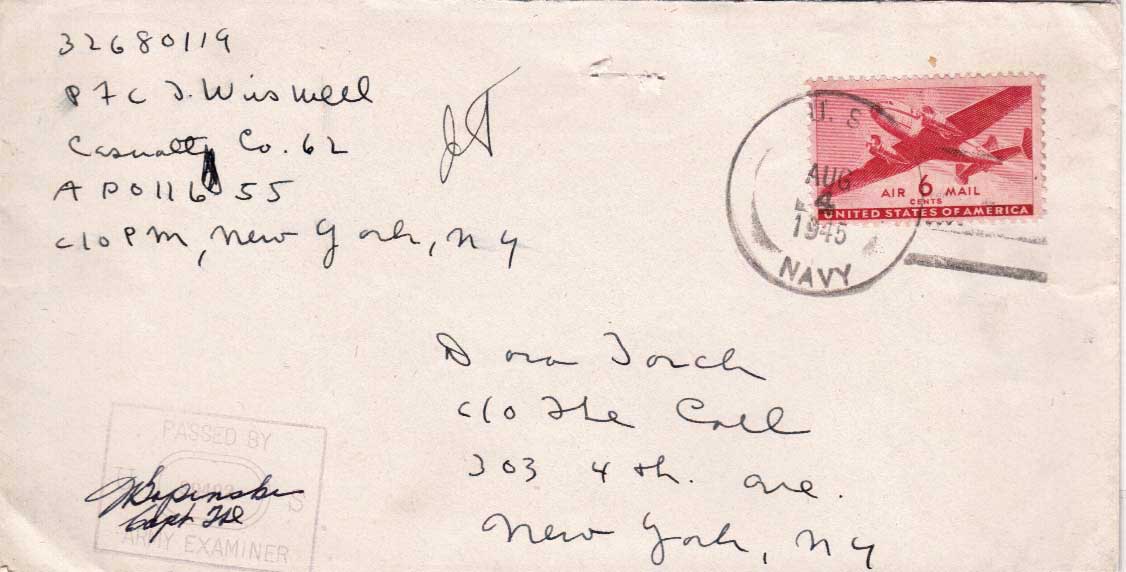 32680119
PFC I. Wiswell
Casualty Co. 62
APO 116 55
c/o PM, New York, NY
U. S.
AUG
4
1945
NAVY
AIR 6 MAIL
CENTS
UNITED STATES OF AMERICA
Dora Torch
c/o The Call
303 4th. Ave.
New York, NY
PASSED BY
S
Capt
ARMY EXAMINER